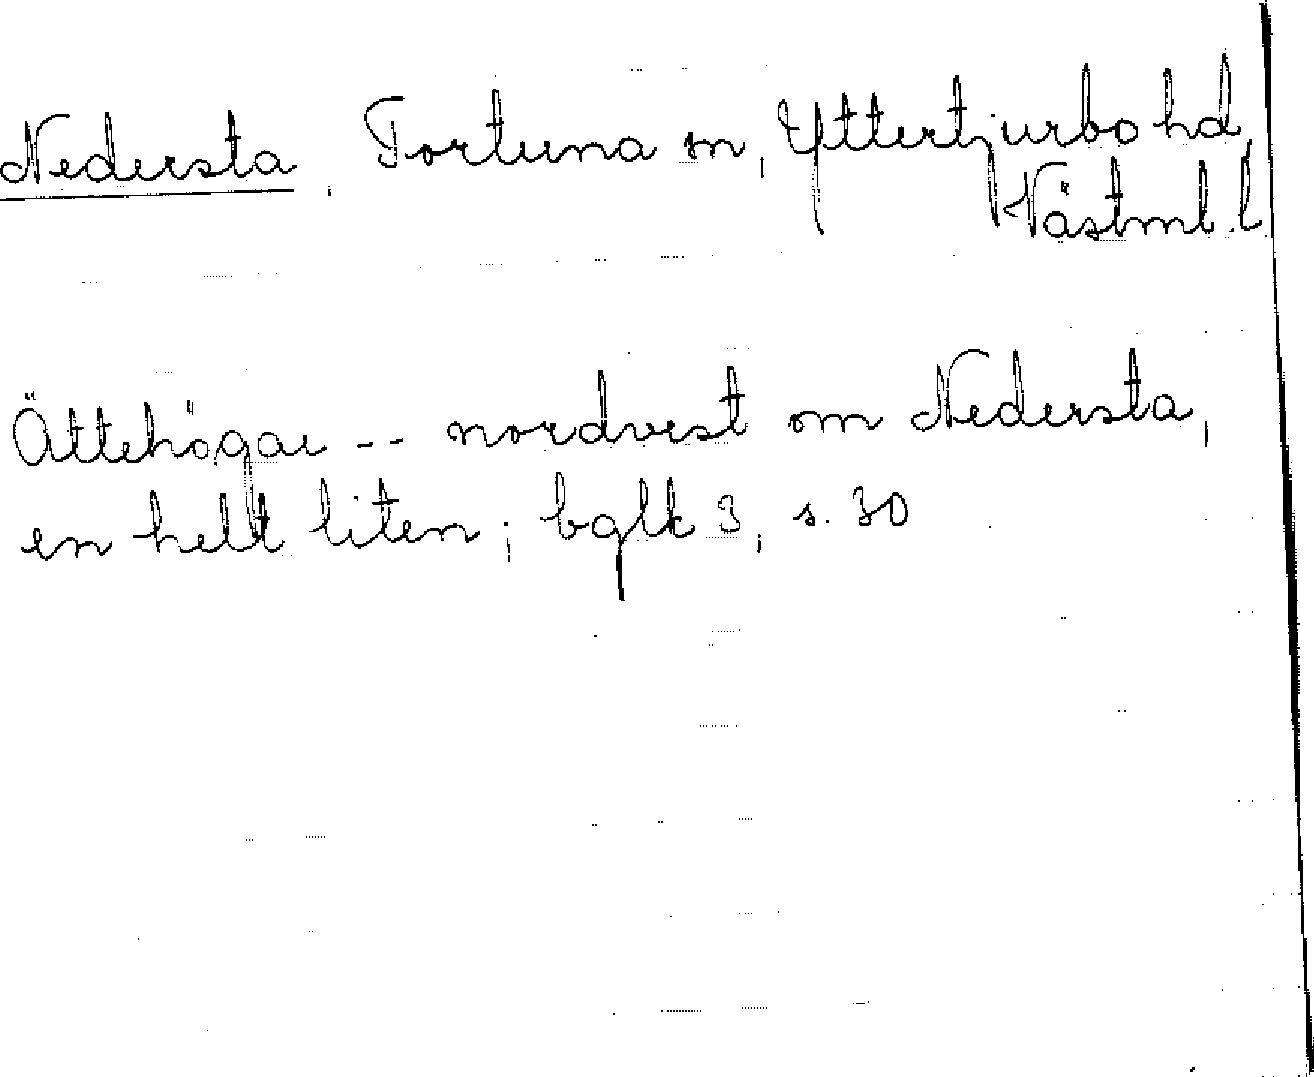 Nedersta, Tortuna sn, Yttertjurbo hd,
Västml. l
Ättehögar -- nordvest om Nedersta,
en helt liten; bglk 3, s. 30